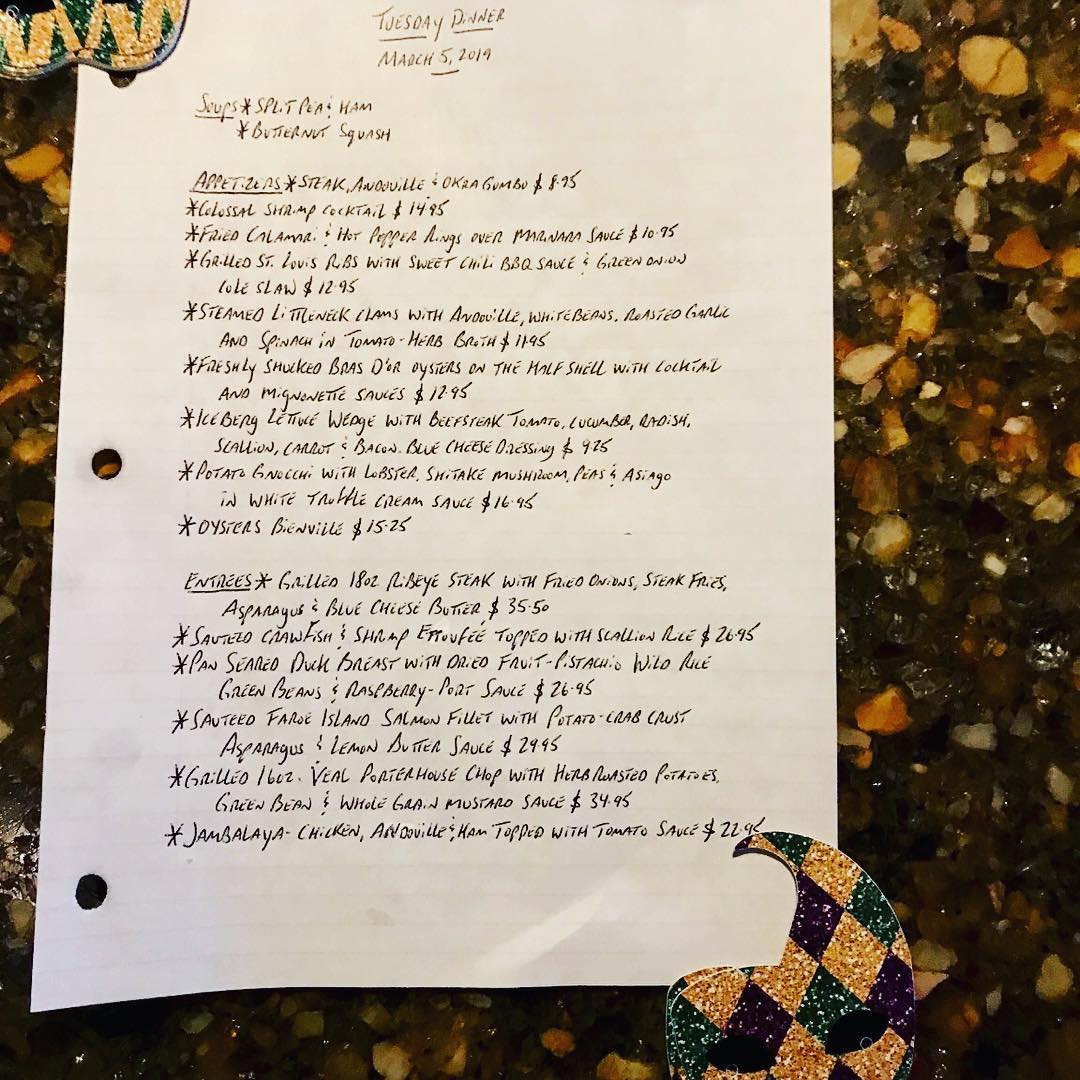 TUESDAY DINNER
MARCH 5, 2019
SOUPS * SPLIT PEA & HAM
* BUTTERNUT SQUASH
APPETIZERS * STEAK, ANDOUILLE & OKRA GUMBO $ 8.95
* COLOSSAL SHRIMP COCKTAIL $ 14.95
* FRIED CALAMARI & HOT PEPPER RINGS OVER MARINARA SAUCE $ 10.95
* GRILLED ST. LOUIS RIBS WITH SWEET CHILI BBQ SAUCE & GREEN ONION
COLE SLAW $ 12.95
* STEAMED LITTLENECK CLAMS WITH ANDOUILLE, WHITE BEANS, ROASTED GARLIC
AND SPINACH IN TOMATO-HERB BROTH $ 11.95
* FRESHLY SHUCKED BRAS D'OR OYSTERS ON THE HALF SHELL WITH COCKTAIL
AND MIGNONETTE SAUCES $ 12.95
* ICEBERG LETTUCE WEDGE WITH BEEFSTEAK TOMATO, CUCUMBER, RADISH,
SCALLION, CARROT & BACON. BLUE CHEESE DRESSING $ 9.25
* POTATO GNOCCHI WITH LOBSTER, SHITAKE MUSHROOM, PEAS & ASIAGO
IN WHITE TRUFFLE CREAM SAUCE $ 16.95
* OYSTERS BIENVILLE $ 15.25
ENTREES * GRILLED 18OZ RIBEYE STEAK WITH FRIED ONIONS, STEAK FRIES,
ASPARAGUS & BLUE CHEESE BUTTER $ 35.50
* SAUTEED CRAWFISH & SHRIMP ETTOUFEÉ TOPPED WITH SCALLION RICE $ 26.95
* PAN SEARED DUCK BREAST WITH DRIED FRUIT-PISTACHIO WILD RICE
GREEN BEANS & RASPBERRY-PORT SAUCE $ 26.95
* SAUTEED FAROE ISLAND SALMON FILLET WITH POTATO-CRAB CRUST
ASPARAGUS & LEMON BUTTER SAUCE $ 29.95
* GRILLED 16OZ. VEAL PORTERHOUSE CHOP WITH HERB ROASTED POTATOES,
GREEN BEAN & WHOLE GRAIN MUSTARD SAUCE $ 34.95
* JAMBALAYA- CHICKEN, ANDOUILLE & HAM TOPPED WITH TOMATO SAUCE $ 22.95